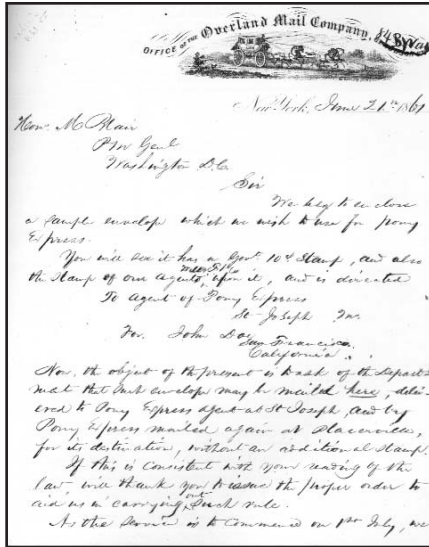 OFFICE OF THE Overland Mail Company, 84 B'Way
New York, June 21st 1861
Hon. M Blair
P M Genl
Washington D.C.
Sir
We beg to enclose
a sample envelope which we wish to use for pony
Express.
You will see it has a Govt. 10¢ Stamp, and also
the Stamp of our Agents, upon it, and is directed
To Agent of Pony Express
St Joseph Mo
For. John Doe
San Francisco
California.
Now, the object of the present is to ask of the Depart
ment that such envelope may be mailed here, deliv-
ered to Pony Express agent at St Joseph, and by
Pony Express mailed again at Placerville,
for its destination, without an additional Stamp.
If this is consistent with your reading of the
law will thank you to issue the proper order to
aid us in carrying out such rule.
As the Service is to Commence on 1st July, we